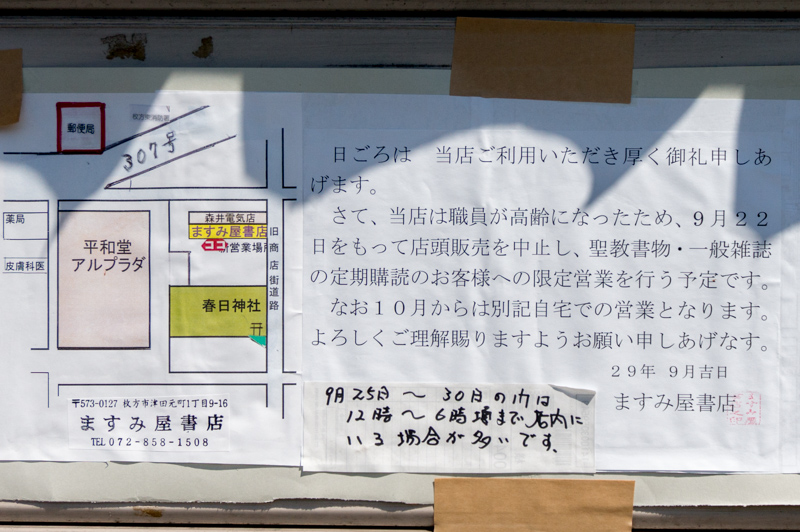 郵便局
307号
薬局
皮膚科医
平和堂
アルプラダ
森井電気店
ますみ屋書店
ココ
新営業場所
旧商店街道路
春日神社
〒573-0127 枚方市津田元町1丁目9-16
ますみ屋書店
TEL 072-858-1508
日ごろは 当店ご利用いただき厚く御礼申しあ
げます。
さて、当店は職員が高齢になったため、9月22
日をもって店頭販売を中止し、聖教書物・一般雑誌
の定期購読のお客様への限定営業を行う予定です。
なお10月からは別記自宅での営業となります。
よろしくご理解賜りますようお願い申しあげなす。
29年 9月吉日
ますみ屋書店
9月25日〜30日の内は
12時〜6時頃まで店内に
いる場合が多いです。